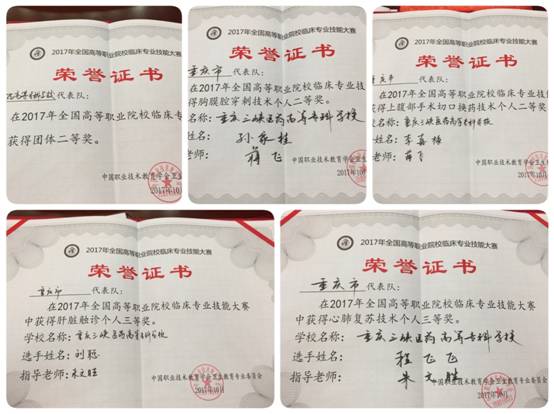 2017年全国高等职业院校临床专业技能大赛
荣誉证书
代表队:
在2017年全国高等职业院校临床专
获得团体二等奖。
中国职业技术教育学会卫生
2017年10月
2017年全国高等职业院校临床专业技能大赛
荣誉证书
重庆市代表队:
在2017年全国高等职业院校临床专业技
得胸膜腔穿刺技术个人二等奖。
名称:重庆三峡医药高等专科学校
姓名:孙家桂
老师:蒋飞
中国职业技术教育学会卫生
2017年10
2017年全国高等职业院校临床专业技能大赛
荣誉证书
重庆市代表队:
在2017年全国高等职业院校临床专业技
得上腹部手术切口换药技术个人二等奖。
名称:重庆三峡医药高等专科学校
姓名:李嘉
老师:蒋飞
中国职业技术教育学会卫生
2017年10月
2017年全国高等职业院校临床专业技能大赛
荣誉证书
重庆市代表队:
在2017年全国高等职业院校临床专业技能大赛
中获得肝脏触诊个人三等奖。
学校名称:重庆三峡医药高等专科学校
选手姓名:刘聪
指导老师:朱文胜
中国职业技术教育学会卫生教育专业委员会
2017年10月
2017年全国高等职业院校临床专业技能大赛
荣誉证书
重庆市代表队:
在2017年全国高等职业院校临床专业技能大赛
中获得心肺复苏技术个人三等奖。
学校名称:重庆三峡医药高等专科学校
选手姓名:程飞飞
指导老师:朱文胜
中国职业技术教育学会卫生教育专业委员会
2017年10月